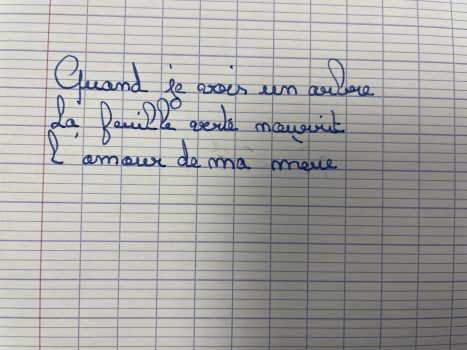 Quand je vois un arbre
La feuille verte mourrit
L'amour de ma mère